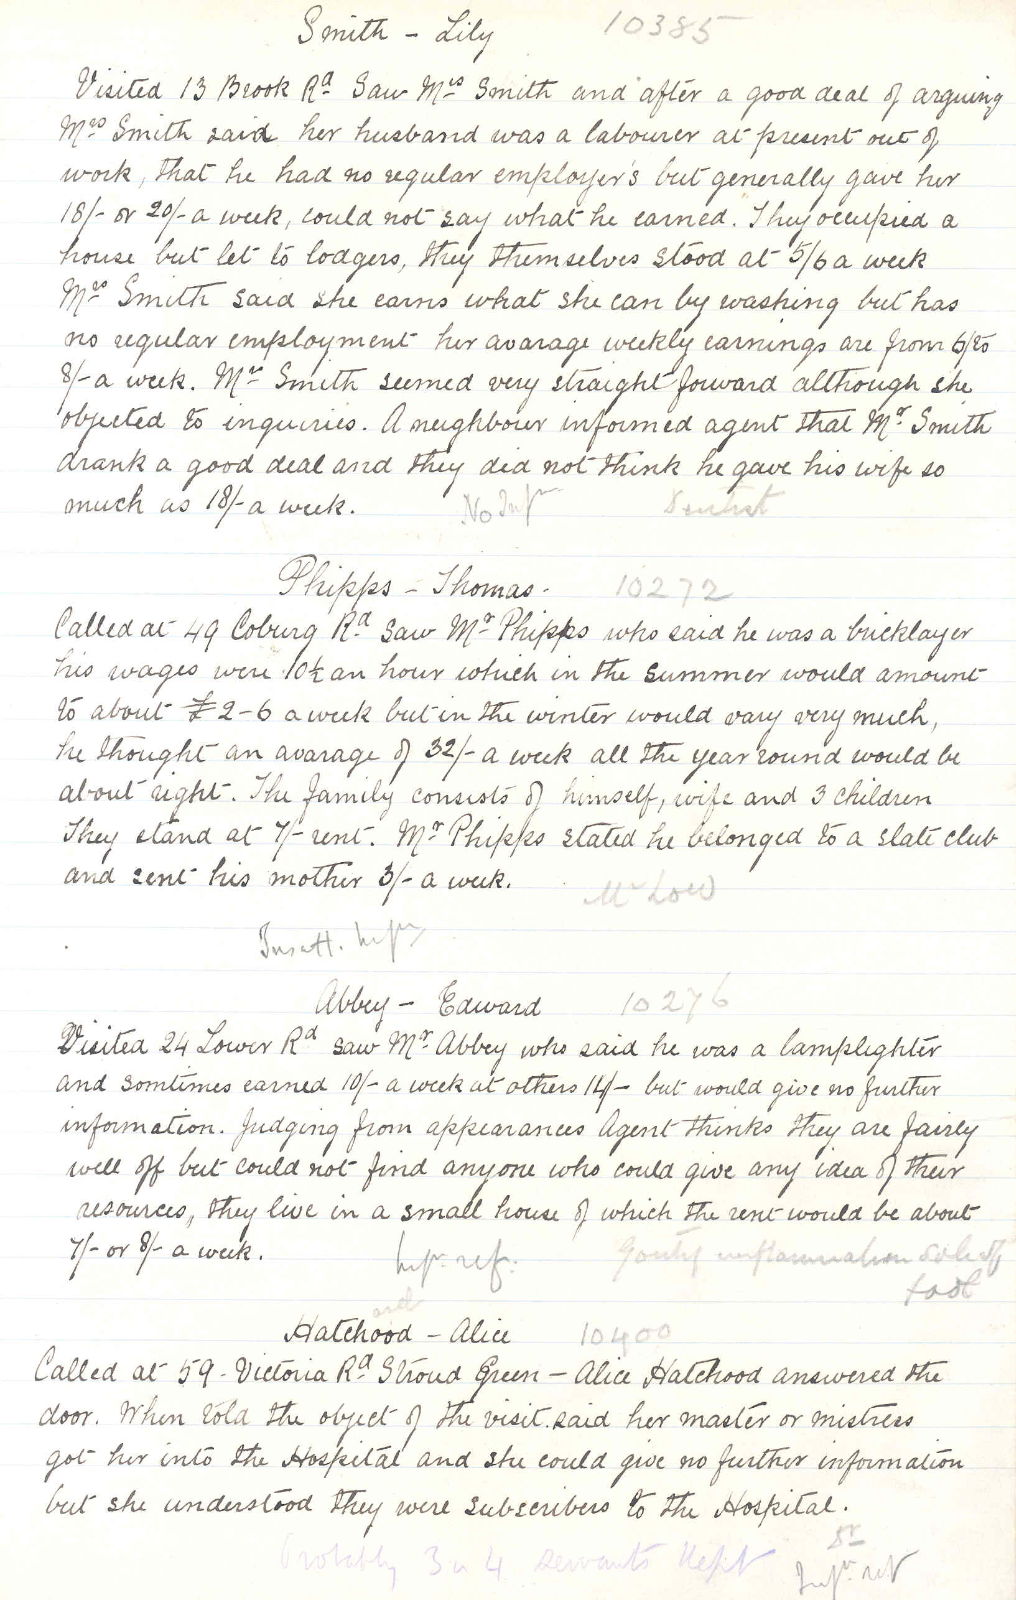 Smith - Lily 10385
Visited 13 Brook Rd Saw Mrs Smith and after a good deal of arguing
Mrs Smith said her husband was a labourer at present out of
work, that he had no regular employer's but generally gave her
18/- or 20/- a week, could not say what he earned. They occupied a
house but let to lodgers, they themselves stood at 5/6 a week
Mrs Smith said she earns what she can by washing but has
no regular employment her avarage weekly earnings are from 6/ to
8/- a week. Mrs Smith seemed very straight forward although she
objected to inquiries. A neighbour informed agent that Mr Smith
drank a good deal and they did not think he gave his wife so
much as 18/- a week. No Infn Dentist
Phipps - Thomas. 10272
Called at 49 Coburg Rd saw Mr Phipps who said he was a bricklayer
his wages were 10½ an hour which in the summer would amount
to about £2-6 a week but in the winter would vary very much,
he thought an avarage of 32/- a week all the year round would be
about right. The family consists of himself, wife and 3 children
They stand at 7/- rent. Mr Phipps stated he belonged to a slate club
and sent his mother 3/- a week. Mr Low
Insatt. Infn
Abbey - Edward 10276
Visited 24 Lower Rd saw Mr Abbey who said he was a lamplighter
and somtimes earned 10/- a week at others 14/- but would give no further
information. Judging from appearances Agent thinks they are fairly
well off but could not find anyone who could give any idea of their
resources, they live in a small house of which the rent would be about
7/- or 8/- a week. Infn ref. Gouty inflammation of
foot
Hatchood - Alice 10400
Called at 59. Victoria Rd Stroud Green - Alice Hatchood answered the
door. When told the object of the visit. said her master or mistress
got her into the Hospital and she could give no further information
but she understood they were subscribers to the Hospital.
Probably 3 or 4 servants kept Infn ref